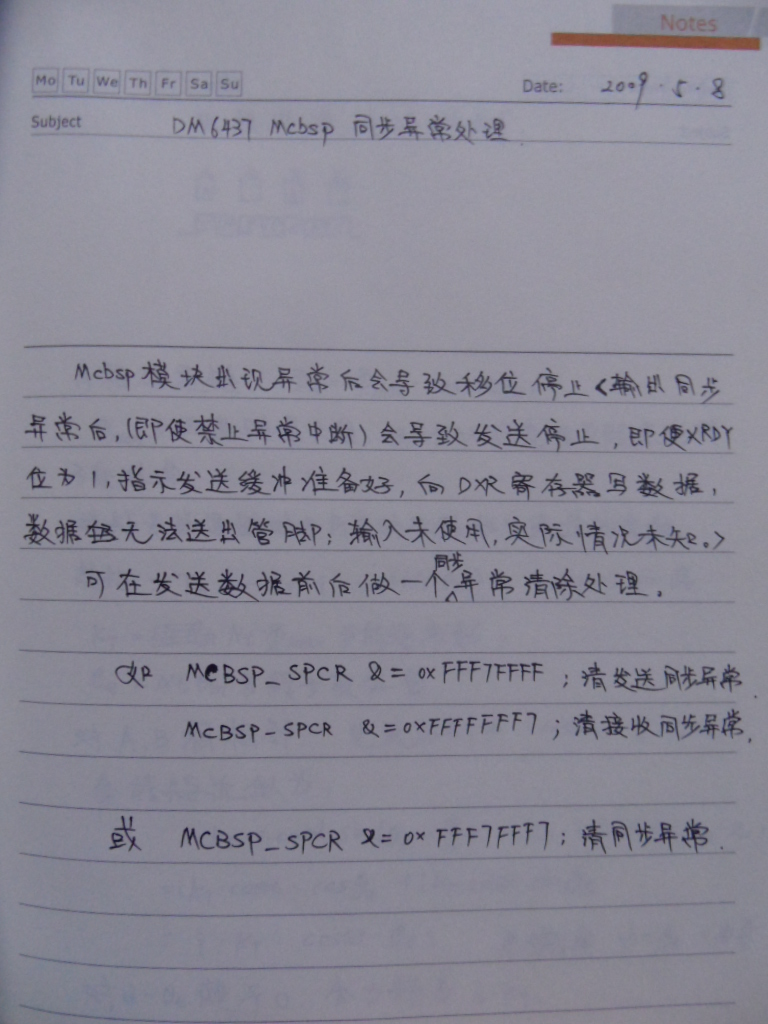 Notes
Mo Tu We Th Fr Sa Su
Date: 2009.5.8
Subject DM6437 Mcbsp 同步异常处理
Mcbsp模块出现异常后会导致移位停止<输出同步
异常后,(即使禁止异常中断)会导致发送停止,即便XRDY
位为1,指示发送缓冲准备好,向DXR寄存器写数据,
数据无法送出管脚;输入未使用,实际情况未知。>
可在发送数据前后做一个同步异常清除处理。
如 McBSP_SPCR &= 0xFFF7FFFF ;清发送同步异常
McBSP_SPCR &=0xFFFFFFF7 ;清接收同步异常.
或 MCBSP_SPCR &= 0xFFF7FFF7;清同步异常.